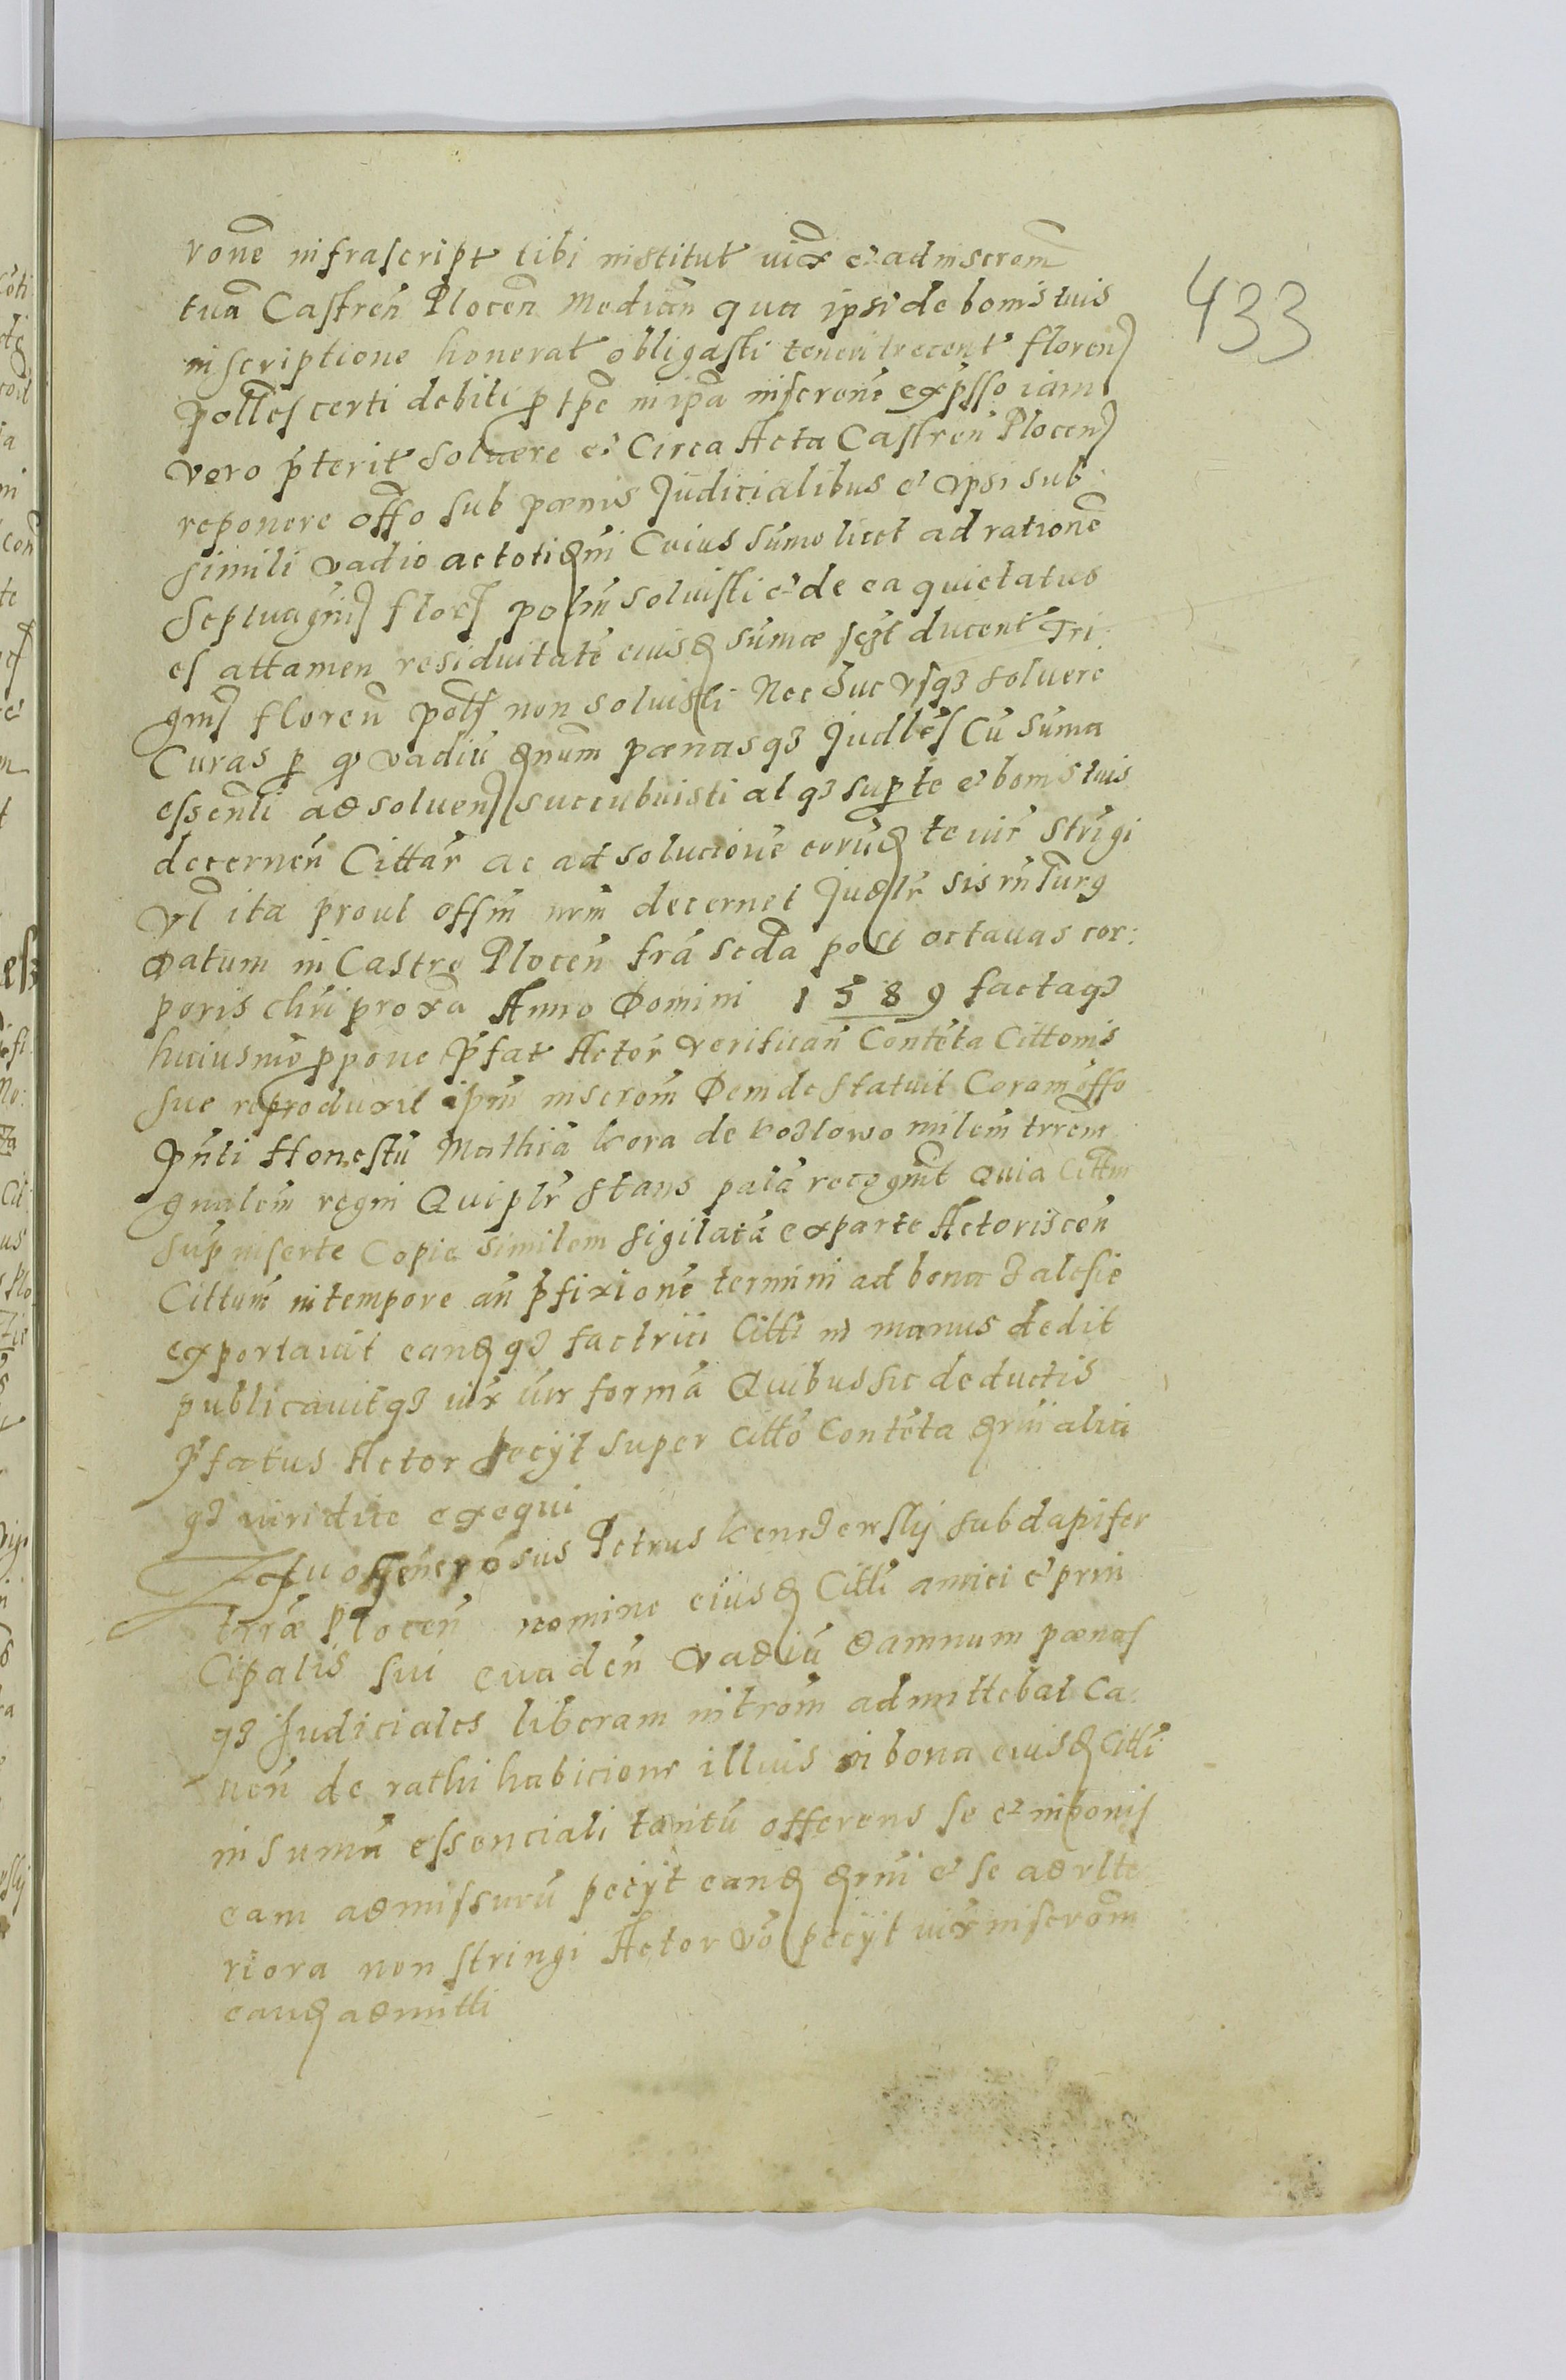 433
rone infrascript tibi institut iux et ad inscrom
tua Castren Plocen Median qua ipsi de bonis tuis
inscriptione honerat obligasti teneri trecent floren
polles certi debiti p tpe in ipa inscrone expsso iam
vero pterit solvere et Circa Acta Castren Plocen
reponere offo sub pœnis Judicialibus et ipsi sub
simili vadio ac totidem Cuius sume licet ad ratione
septuagin flor polm solvisti et de ea quietatus
es attamen residuitate eiusd sumæ sczt ducent Tri
gin floren pol non solvisti Nec huc vsq3 solvere
Curas p q vadiu dnum pœnasq3 Judles Cu suma
essenli ad solven succubuisti atq3 sup te et bonis tuis
decernen Cittar ac ad solucione eorud te iur stringi
vl ita prout offm nrm decernet Judlr sis rnturg
Datum in Castro Plocen fra scda post octavas cor:
poris chri proxa Anno Domini 1589 factaq3
huiusmo ppone pfat Actor verifican Conteta Cittonis
sue reproduxit ipm inscrom Deinde statuit Coram offo
pnti Honestu Mathia kora de kozlowo milem trrem
gnalem regni Qui plr stans pala recognit Quia Cittm
sup inserte Copie similem sigilata exparte Actoris con
Cittum in tempore an pfixione termini ad bona Zalesie
exportavit eandq3 factrici Citti in manus dedit
publicavitq3 iux iur forma Quibus sic deductis
pfatus Actor pecyt super citto Conteta drni alia
q3 iuridice exequi
Ex quo Generosus Petrus kendzerskij subdapifer
terræ Plocen nomine eiusd Citti amici et prin
Cipalis sui evaden vadiu damnum pœnas
q3 Judiciales liberam introm admittebat Ca
ven de rathi habicione illius in bona eiusd Citti
in suma essenciali tantu offerens se et in bonis
eam admissuru pecyt eand drni et se ad vlte
riora non stringi Actor vo pecyt iux inscrom
eand admitti